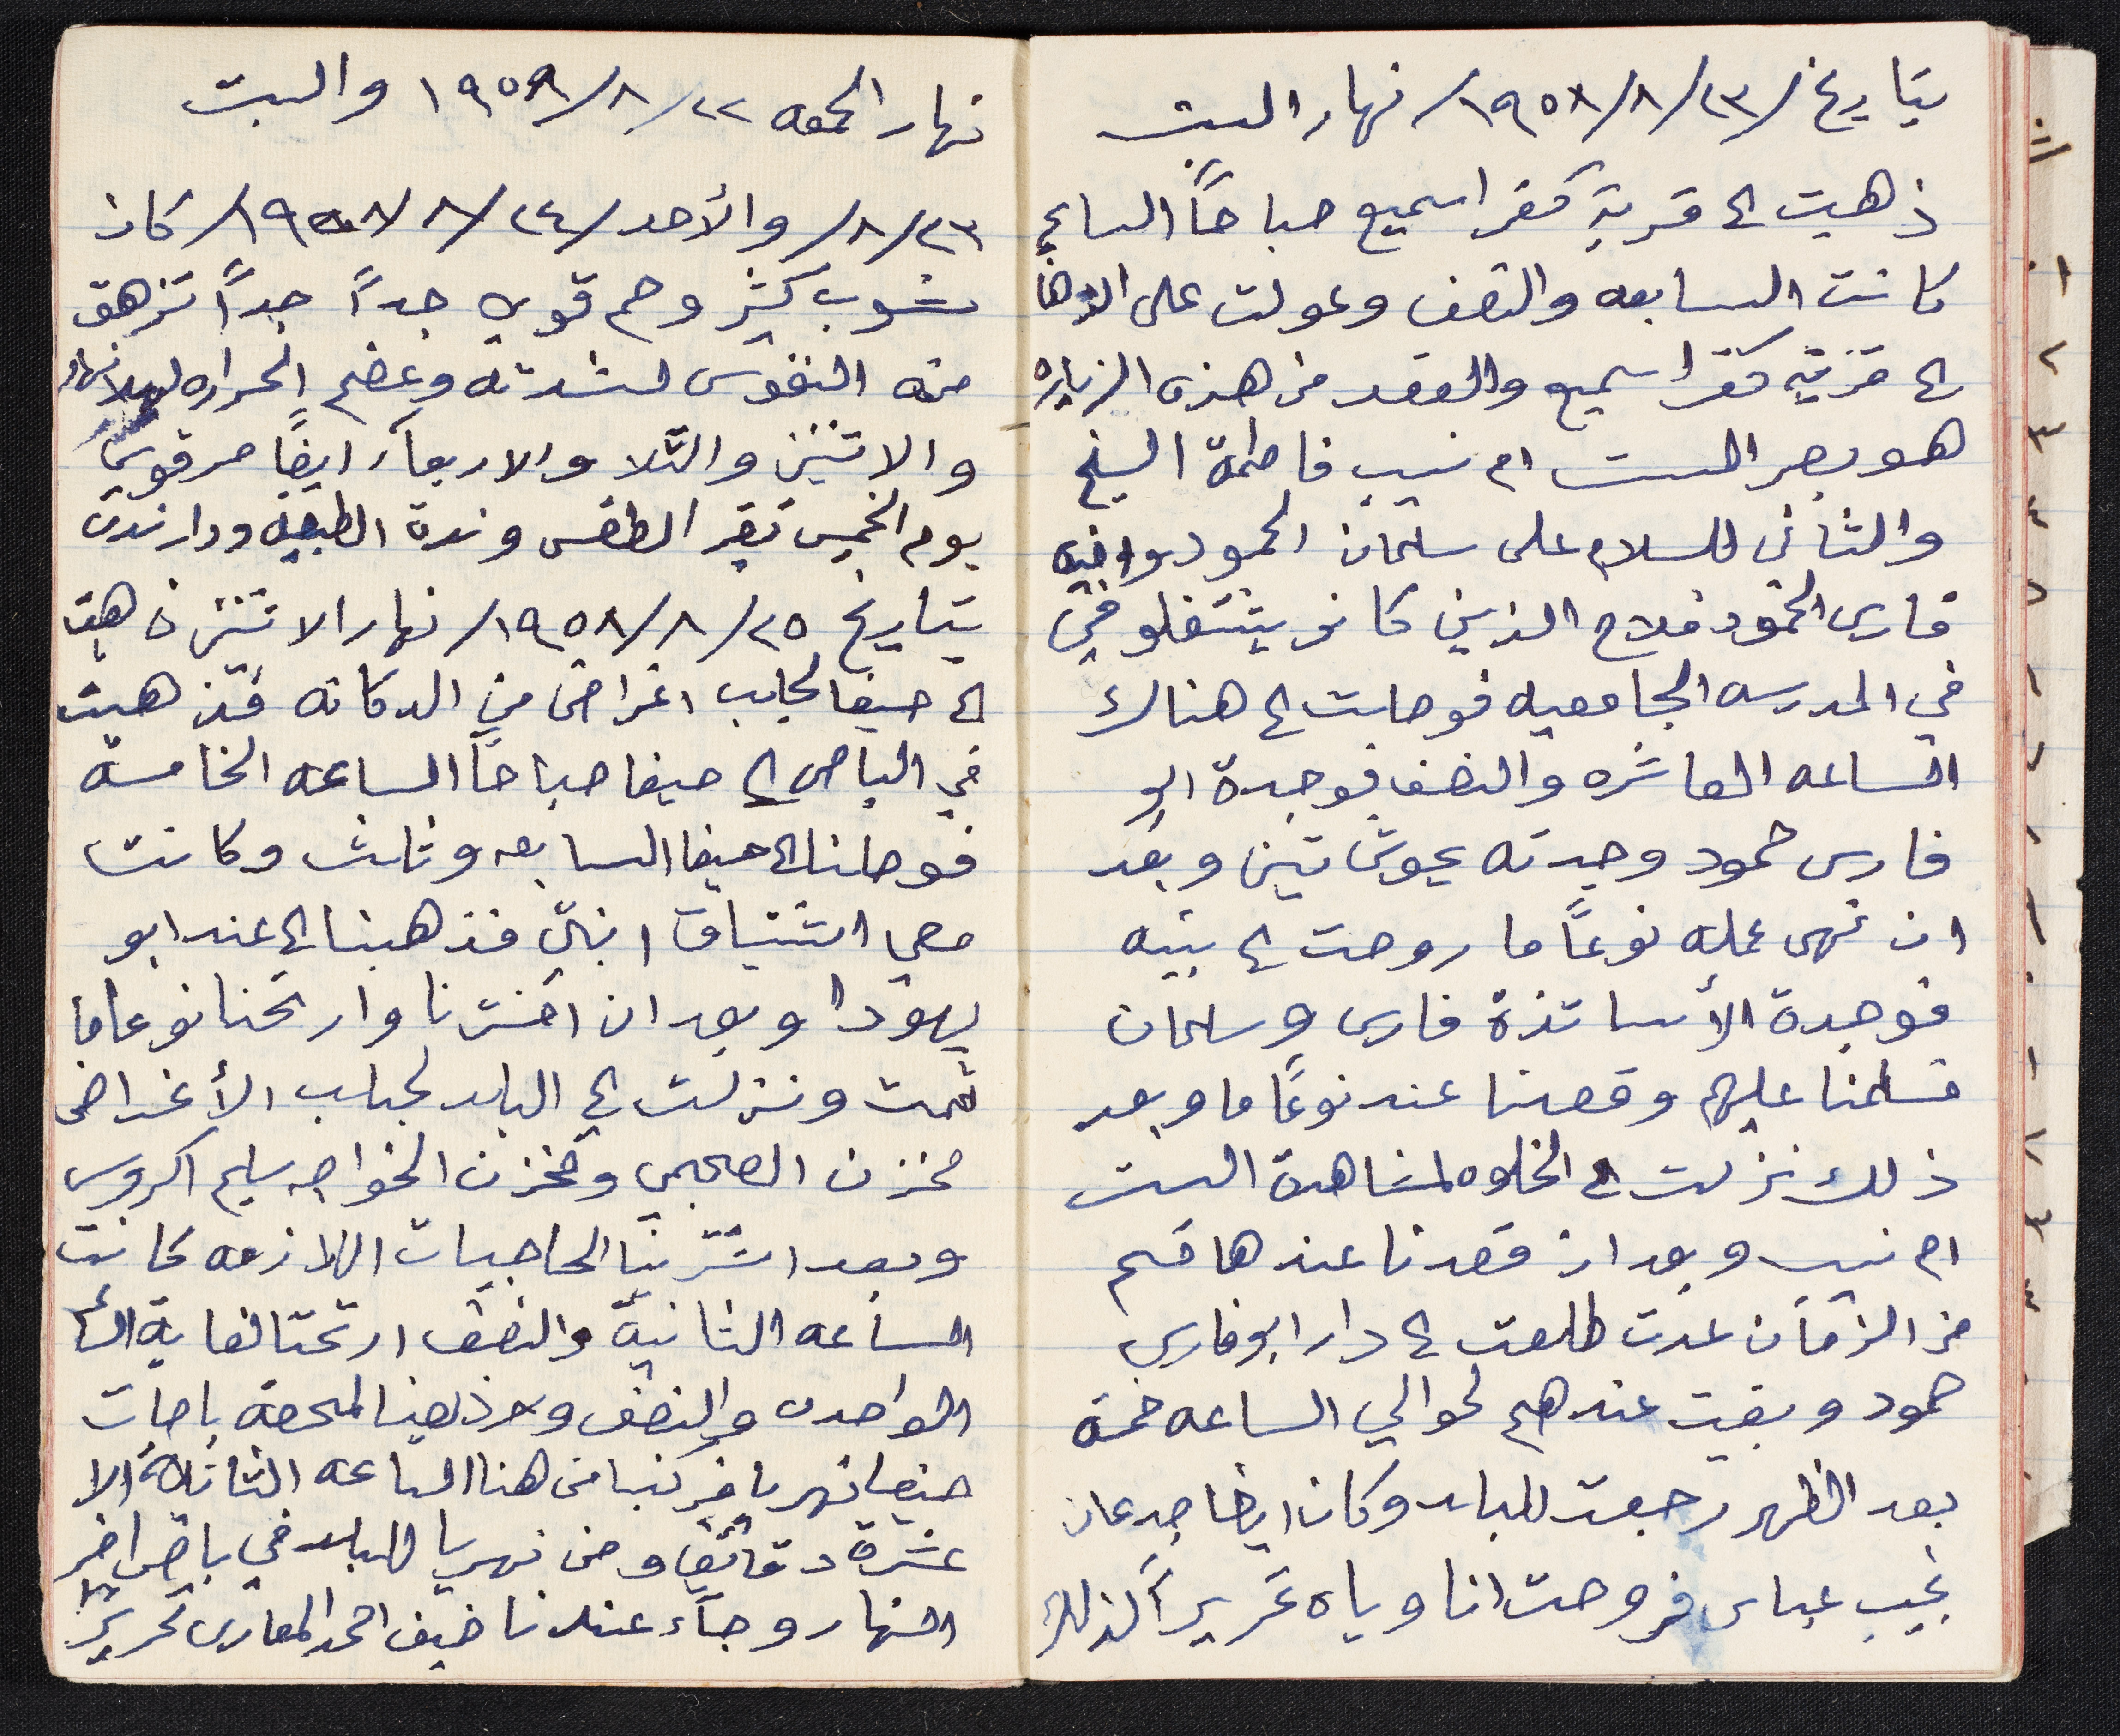 بتاريخ /٢٣/٨/١٩٥٨/ نهار السبت
ذهبت الى قرية كفر اسميع صباحاً الساعه
كانت السابعه والنصف وعولت على الذهاب
الى قرية كفر اسميع والقصد من هذه الزياره
هو بصر الست ام نسيب فاطمة الشيخ
والثاني للسلام على سلمان الحمود وابنه
فارس الحمود فلاح الذين كانو يشتغلو في
في المدرسه الجامعيه فوصلت الى هناك
الساعه العاشره والنصف فوجدة ابو
فارس حمود وجدته يحوش تين وبعد
ان نهى عمله نوعاً ما روحت الى بيته
فوجدة الأساتذة فارس و سلمان
فسلمنا عليهم وقعدنا عند نوعاً ما وبعد
ذلك نزلت الى الخلوه لمشاهدة الست
ام نسيب وبعد ان قعدنا عندها قسم
من الزمان عدت طلعت الى دار ابو فارس
حمود وبقيت عندهم لحوالي الساعه خمسة
بعد الظهر رجعت للبلد وكان ايضا جدعان
نجيب عباس فروحت انا وياه تحريراً لذلك
نهار الجمعه ٢٢/٨/١٩٥٨ والسبت
٢٣/٨/ والأحد /٢٤/٨/١٩٥٨/ كان
شوب كثير وحم قوي جداً جداً تزهق
منه النفوس لشدته وعضم الحراره ليلا نهار
والاثنين والثلا والاربعاء ايضاً حر قوي
يوم الخميس تغير الطقس وندة الطبيعه ودار ندى
بتاريخ ٢٥/٨/١٩٥٨/ نهار الاثنين ذهبت
الى حيفا لجلب اغراض من الدكانه فذهبت
في الباص الى حيفا صباحاً الساعه الخامسة
فوصلنا الى حيفا السابعه وثلث وكانت
معي اشتياق ابنتي فذهبنا الى عند ابو
يهودا وبعد ان افترنا وارتحنا نوعاما
قمت ونزلت الى البلد لجلب الأغراض
مخزن الصحبي ومخزن الخواجه سليم اكروس
وبعد اشترينا الحاجيات اللازمه كانت
الساعه الثانية والنصف ارتحنا لغاية السا
الواحده والنصف وخذ لهنا لمحطة باصات
حيفا نهريا فركبنا من هنا الساعه الثالثة الا
عشرة دقائق ومن نهريا للبلد في باص اخر
النهار وجاء عندنا ضيف احمد المغاري تحريرً